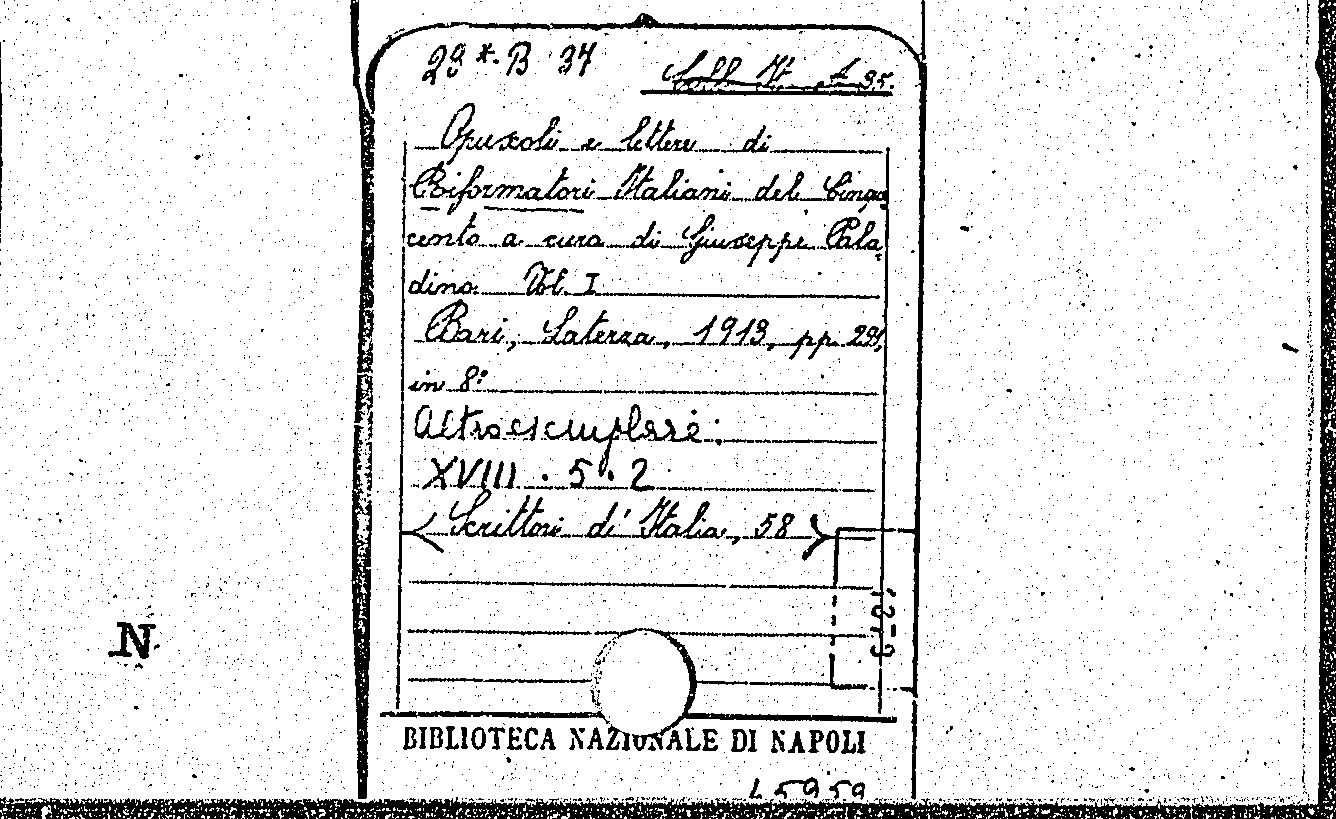 29*. B 37
Opuscoli e lettere di
Riformatori Italiani del Cinque
cento a cura di Giuseppe Pala
dino. Vol. I
Bari, Laterza, 1913, pp. 299,
in 8º
Altro esemplare:
XVIII. 5. 2
(Scrittori d'Italia, 58)
N
BIBLIOTECA NAZIONALE DI NAPOLI